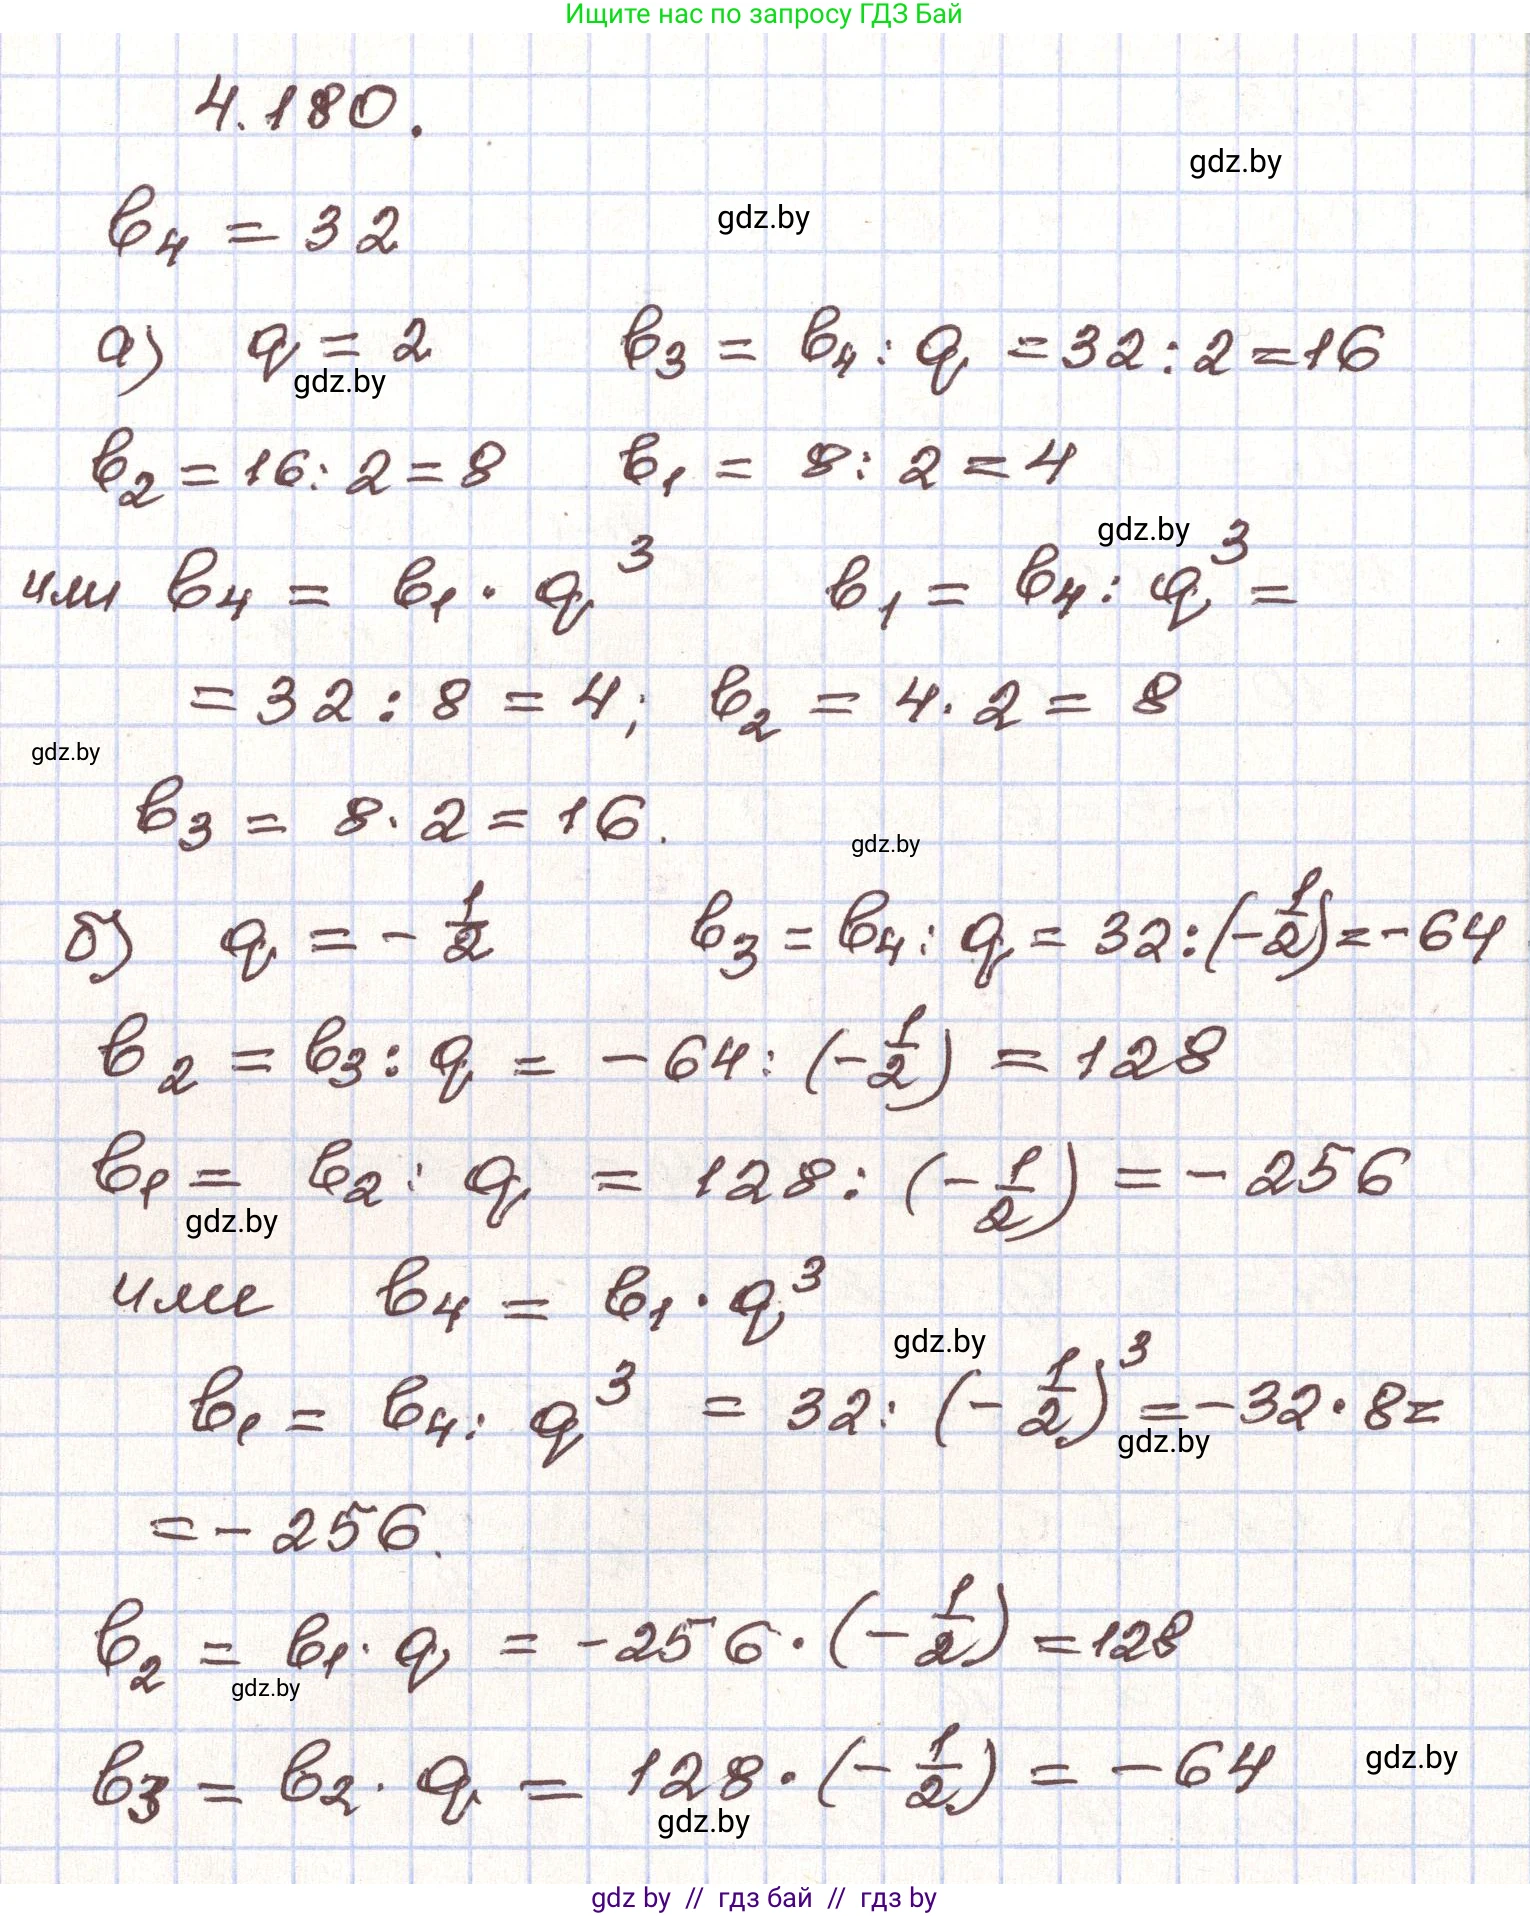 Ищите нас по запросу ГДЗ Бай
4.180.
gdz.by
b₄ = 32
gdz.by
а) q = 2 b₃ = b₄ : q = 32 : 2 = 16
gdz.by
b₂ = 16 : 2 = 8 b₁ = 8 : 2 = 4
gdz.by
или b₄ = b₁ · q³ b₁ = b₄ : q³ =
= 32 : 8 = 4; b₂ = 4 · 2 = 8
gdz.by
b₃ = 8 · 2 = 16.
gdz.by
б) q = - 1/2 b₃ = b₄ : q = 32 : (- 1/2) = - 64
b₂ = b₃ : q = - 64 : (- 1/2) = 128
b₁ = b₂ : q = 128 : (- 1/2) = - 256
gdz.by
или b₄ = b₁ · q³
gdz.by
b₁ = b₄ : q³ = 32 : (- 1/2)³ = - 32 · 8 =
gdz.by
= - 256.
b₂ = b₁ · q = - 256 · (- 1/2) = 128
gdz.by
b₃ = b₂ · q = 128 · (- 1/2) = - 64
gdz.by
gdz.by
gdz by // гдз бай // гдз by